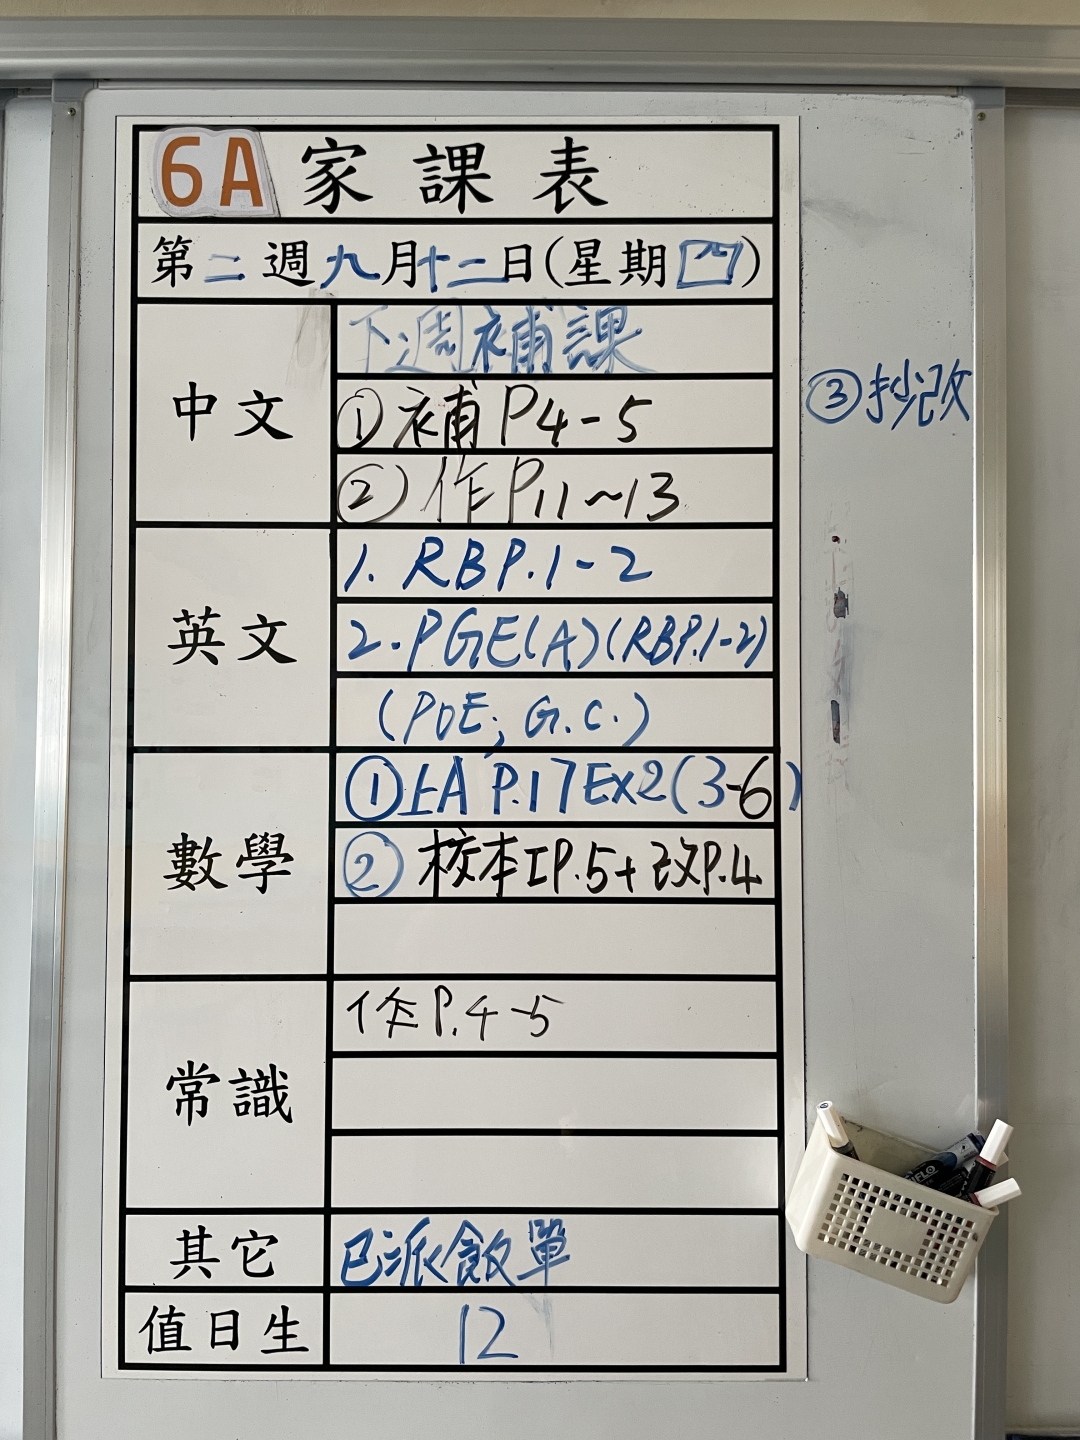 6A 家課表
第二週九月十二日(星期四)
中文
下週補課
①補P4-5
②作P11~13
③抄改
英文
1. RBP.1-2
2.PGE(A)(RBP.1-2)
(POE; G.C.)
數學
①上A P.17Ex2(3-6)
②校本工P.5+改P.4
常識
作P.4-5
其它
已派飯單
值日生
12